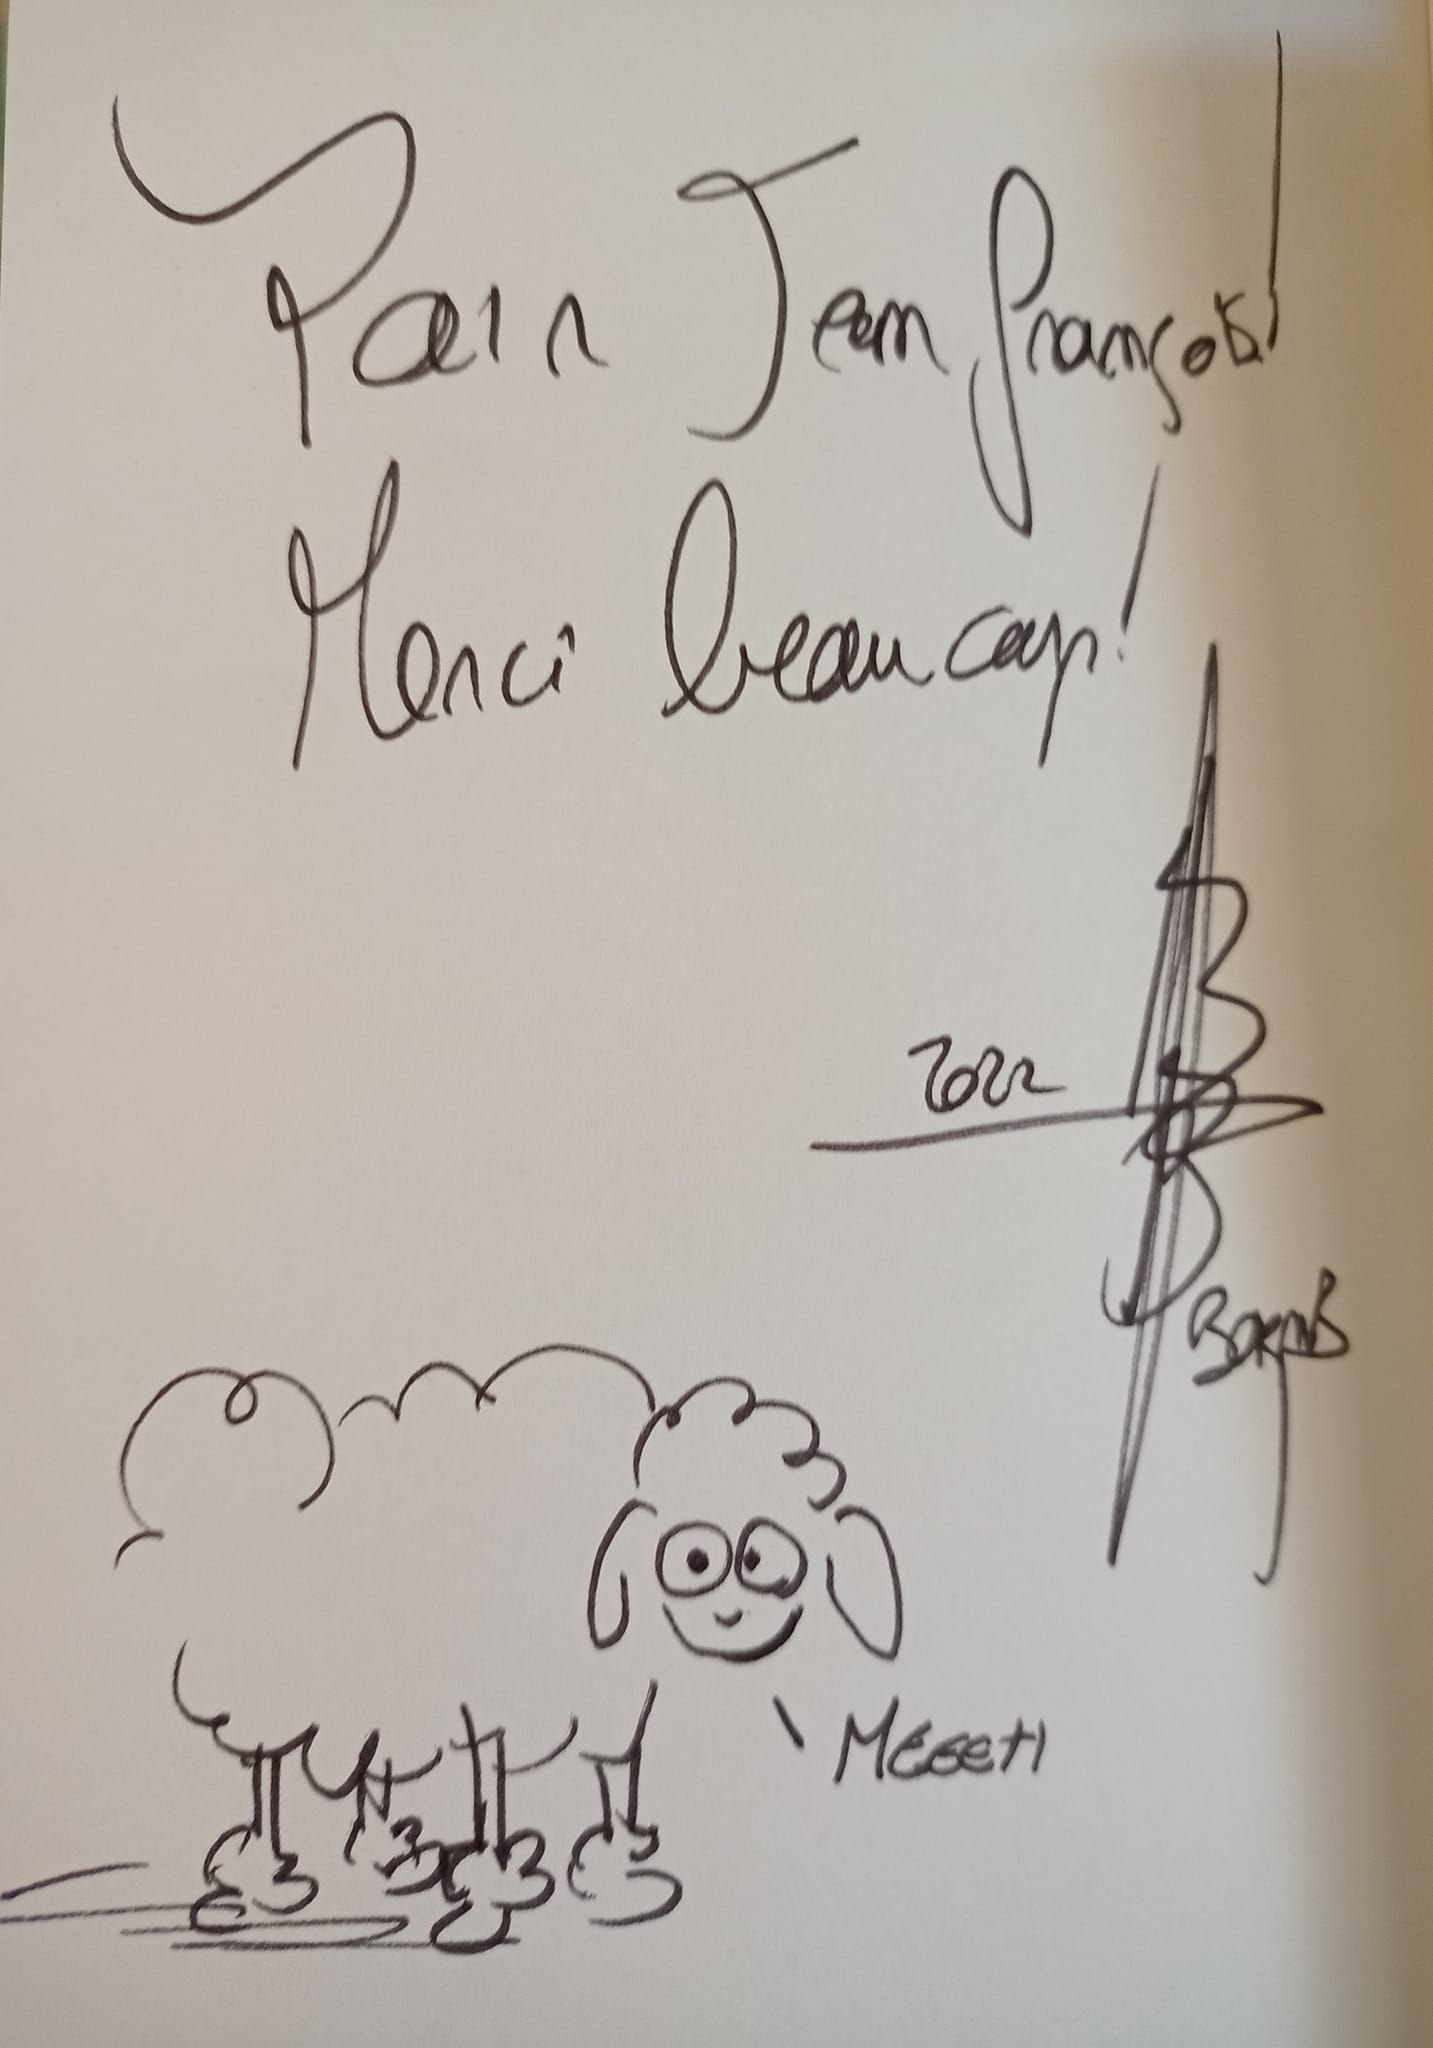 Pour Jean françois!
Merci beaucoup!
2022
Meeeh